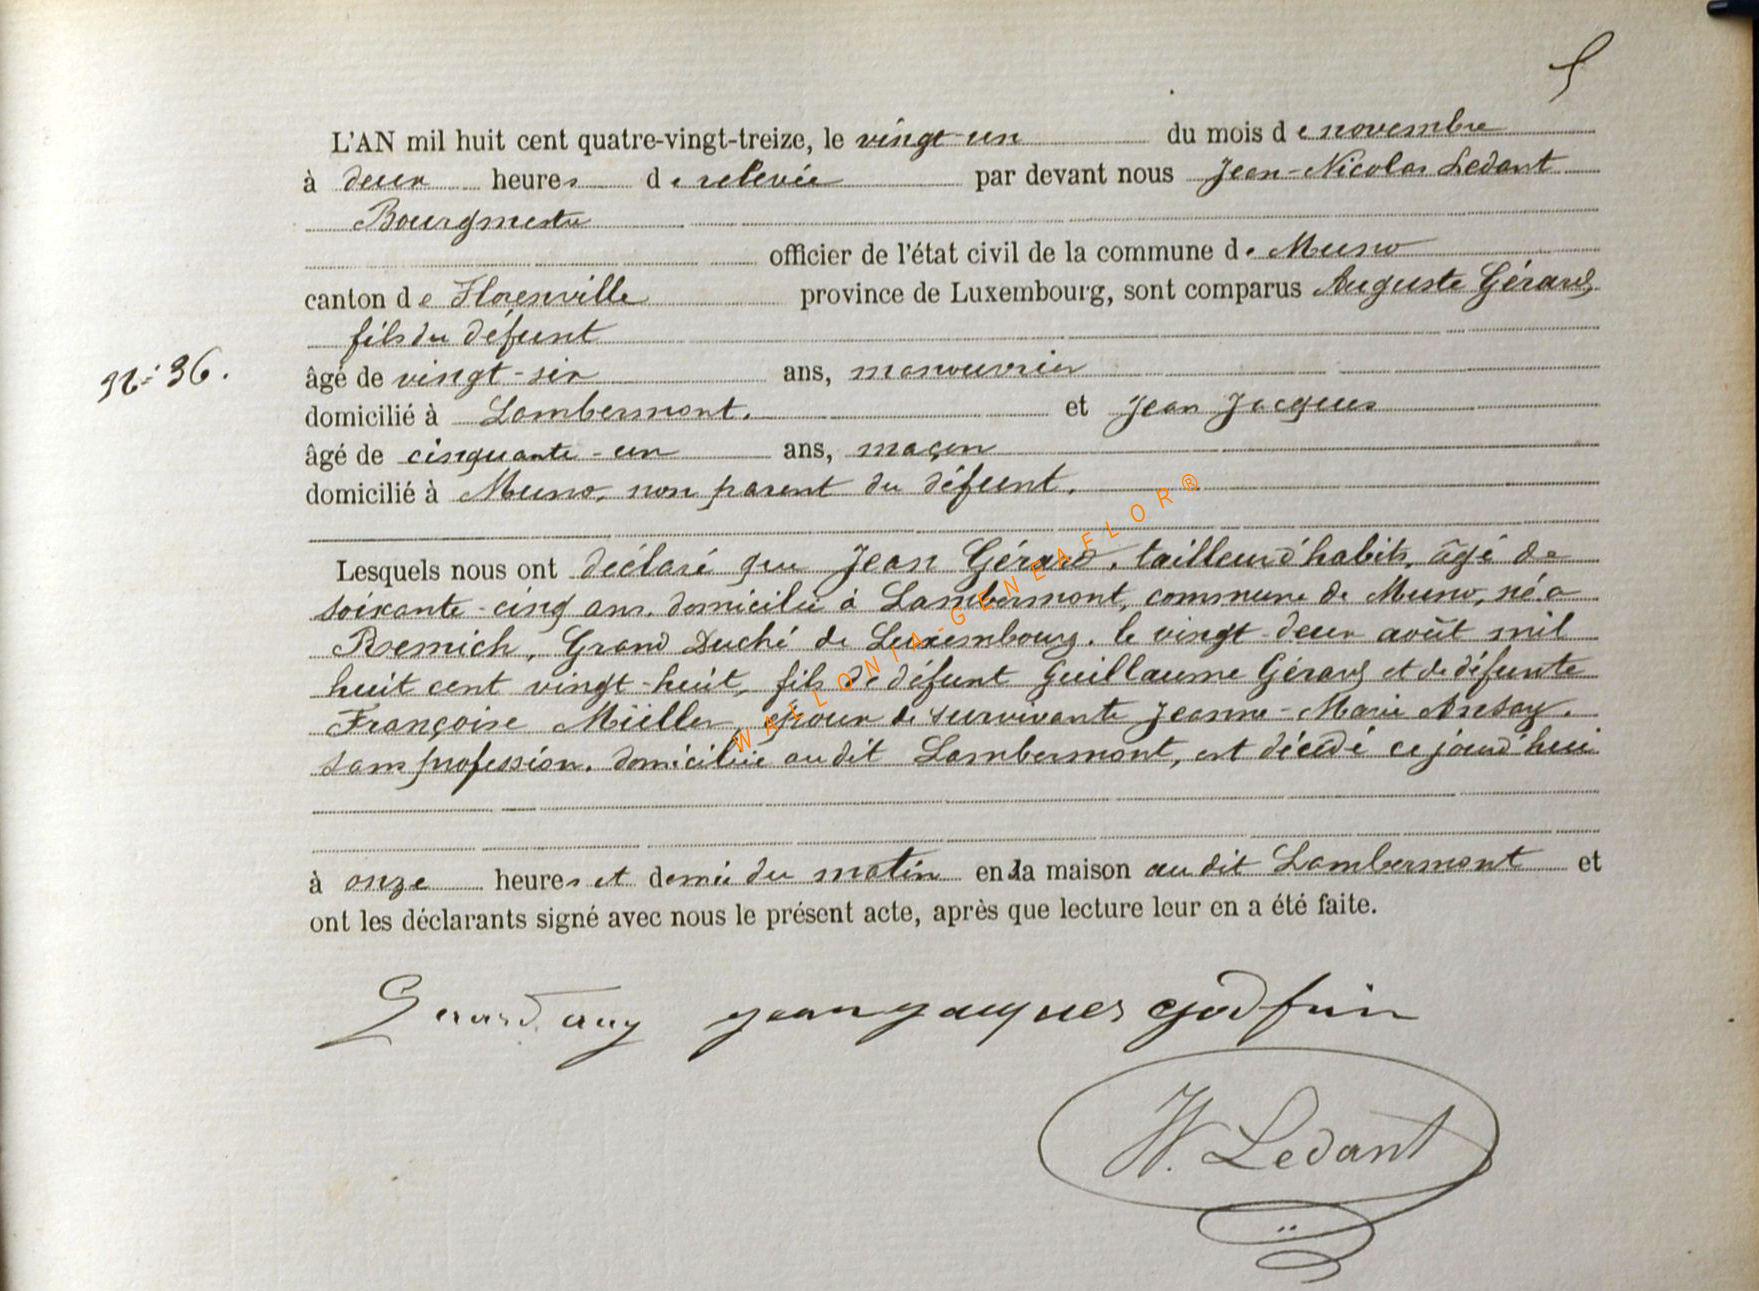 5
L'AN mil huit cent quatre-vingt-treize, le vingt-un du mois de novembre
à deux heures de relevée par devant nous Jean-Nicolas Ledant
Bourgmestre
officier de l'état civil de la commune de Muno
canton de Florenville province de Luxembourg, sont comparus Auguste Gérard,
fils du défunt
N° 36.
âgé de vingt-six ans, manouvrier
domicilié à Lambermont. et Jean Jacques
âgé de cinquante-un ans, maçon
domicilié à Muno, non parent du défunt.
Lesquels nous ont déclaré que Jean Gérard, tailleur d'habits, âgé de
soixante-cinq ans, domicilié à Lambermont, commune de Muno, né à
Remich, Grand Duché de Luxembourg, le vingt-deux août mil
huit cent vingt-huit, fils de défunt Guillaume Gérard et de défunte
Françoise Müller, époux de survivante Jeanne-Marie Ansay,
sans profession, domiciliée au dit Lambermont, est décédé ce jourd'hui
à onze heures et demie du matin en la maison au dit Lambermont et
ont les déclarants signé avec nous le présent acte, après que lecture leur en a été faite.
Gerard aug jean jacques godfrin
N. Ledant
WALLONIA-GENEAFLOR®